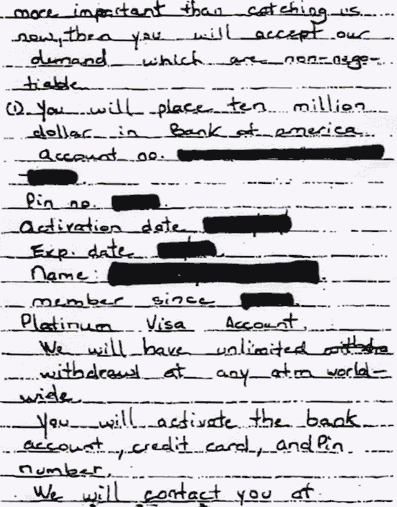 more important than catching us
now, then you will accept our
demand which are non-nego-
tiable
(1). You will place ten million
dollar in Bank of america
account no.
Pin no.
Activation date
Exp. date
Name:
member since
Platinum Visa Account.
We will have unlimited
withdrawl at any atm world-
wide
You will activate the bank
account, credit card, and Pin
number.
We will contact you at